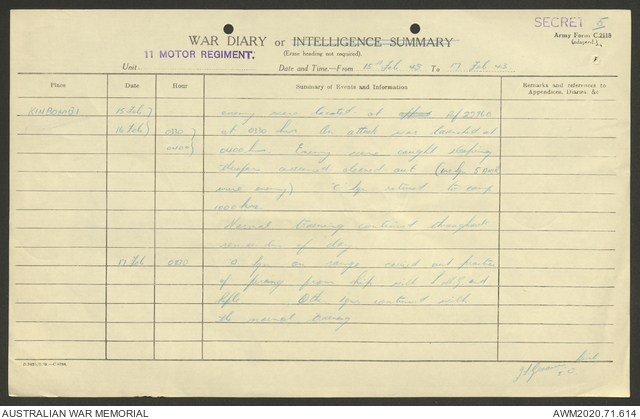 SECRET 5
Army Form C.2118
(adapted.)
WAR DIARY or INTELLIGENCE SUMMARY
(Erase heading not required).
11 MOTOR REGIMENT.
Unit
Date and Time—From 15th Feb 43 To 17 Feb 43.
Place Date Hour Summary of Events and Information Remarks and references to Appendices, Diaries, &c
KINBOMBI 15 Feb) enemy were located at
16 Feb) 0330) at 0330 hrs. An attack was launched at
0400) 0400 hrs. Enemy were caught sleeping
cleared out
were enemy) "C" Sqn returned to camp
1000 hrs.
Normal training continued throughout
remainder of day.
17 Feb 0930 Sqn on range carried out practice
of firing from hip with LMG and
Rifle Other Sqns continued with
the normal training
AUSTRALIAN WAR MEMORIAL
AWM2020.71.614